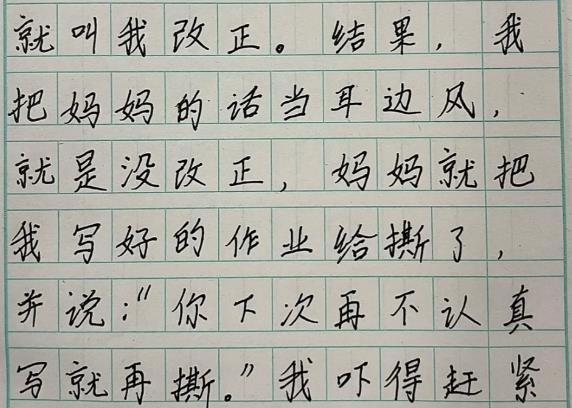 就叫我改正。结果，我
把妈妈的话当耳边风，
就是没改正，妈妈就把
我写好的作业给撕了，
并说：“你下次再不认真
写就再撕。”我吓得赶紧